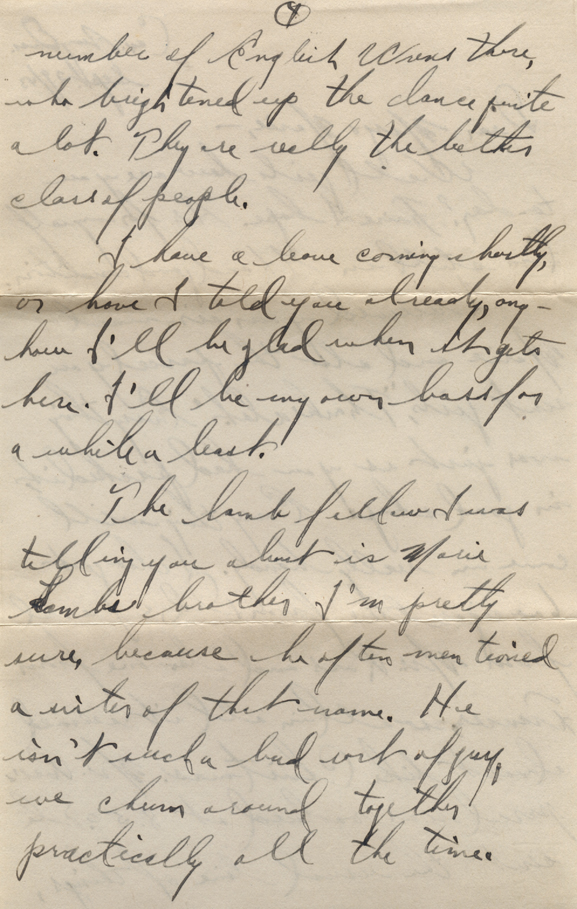 4
number of English Wrens there,
who brightened up the dance quite
a lot. They're really the better
class of people.
I have a leave coming shortly,
or have I told you already, any-
how I'll be glad when it gets
here. I'll be my own boss for
a while a least.
The Lamb fellow I was
telling you about is Marie
Lambs brother I'm pretty
sure, because he often mentioned
a sister of that name. He
isn't such a bad sort of guy,
we chum around together
practically all the time.